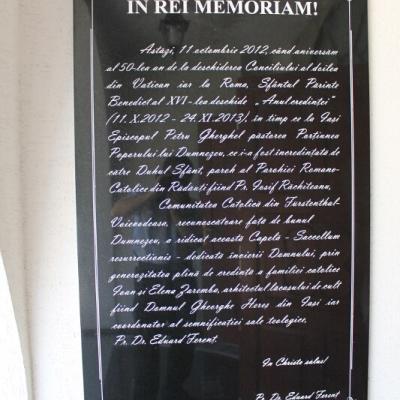 IN REI MEMORIAM!
Astăzi, 11 octombrie 2012, când aniversăm
al 50-lea an de la deschiderea Conciliului al doilea
din Vatican iar la Roma, Sfântul Părinte
Benedict al XVI-lea deschide „Anul credinței"
(11.X.2012 - 24.XI.2013), în timp ce la Iași
Episcopul Petru Gherghel păstorea Porțiunea
Poporului lui Dumnezeu, ce i-a fost încredințată de
către Duhul Sfânt, paroh al Parohiei Romano-
Catolice din Rădăuți fiind Pr. Iosif Răchiteanu,
Comunitatea Catolică din Furstenthal-
Voievodeasa, recunoscătoare față de bunul
Dumnezeu, a ridicat această Capelă - Saccellum
resurrectionis - dedicată învierii Domnului, prin
generozitatea plină de credință a familiei catolice
Ioan și Elena Zaremba, arhitectul lăcașului de cult
fiind Domnul Gheorghe Hereș din Iași iar
coordonator al semnificației sale teologice,
Pr. Dr. Eduard Ferenț.
In Christo salus!
Pr. Dr. Eduard Ferenț